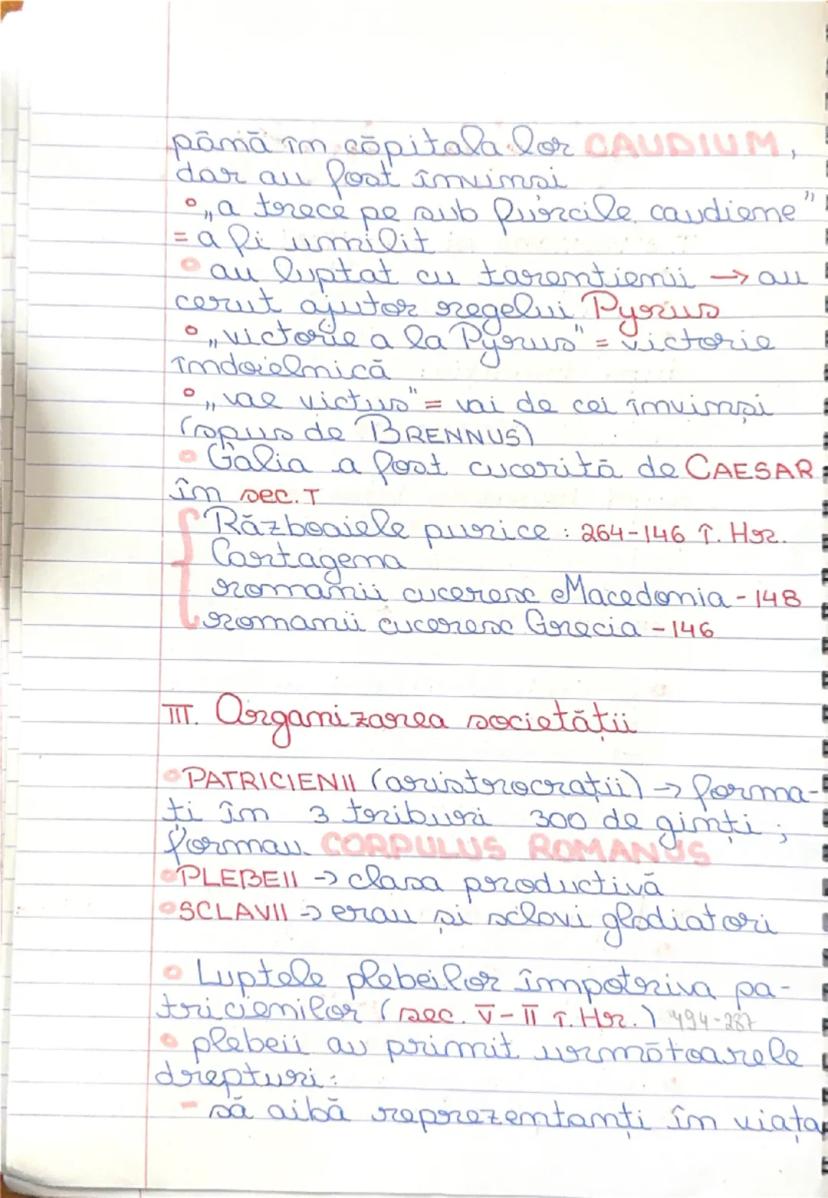 până în căpitala lor CAUDIUM,
dar au fost învinși
„a trece pe sub furcile caudiene"
= a fi umilit
au luptat cu tarentienii → au
cerut ajutor regelui Pyrus
„victorie a la Pyrus" = victorie
îndoielnică
„vae victus" = vai de cei învinși
(spus de BRENNUS)
Galia a fost cucerită de CAESAR
în sec. I
Războaiele punice : 264-146 î. Hr.
Cartagena
romanii cuceresc Macedonia - 148
romanii cuceresc Grecia - 146
III. Organizarea societății
PATRICIENII (aristrocrații) → forma-
ti în 3 triburi 300 de ginți ;
formau CORPULUS ROMANUS
PLEBEII → clasa productivă
SCLAVII → erau și sclavi gladiatori
Luptele plebeilor împotriva pa-
tricienilor (sec. V-II î. Hr.) 494-287
plebeii au primit următoarele
drepturi:
- să aibă reprezentanți în viața